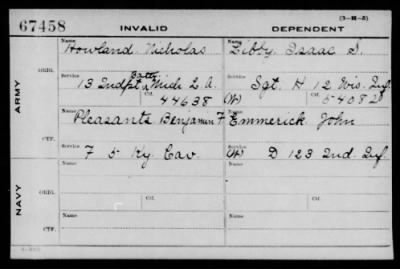 (3-H-5)
67458 INVALID DEPENDENT
Name Name
Howland Nicholas Libby, Isaac S.
ARMY
ORIG. Service Ctf. Service Ctf.
Batty
13 Indpt Mich L. A. Sgt. H 12 Wis. Inf.
44638 (W) 54082
Name Name
Pleasants Benjamin F Emmerick John
CTF. Service Service
F 5 Ky Cav. (W) D 123 Ind. Inf.
NAVY
Name Name
ORIG. Service Ctf. Service Ctf.
Name Name
CTF. Service Service